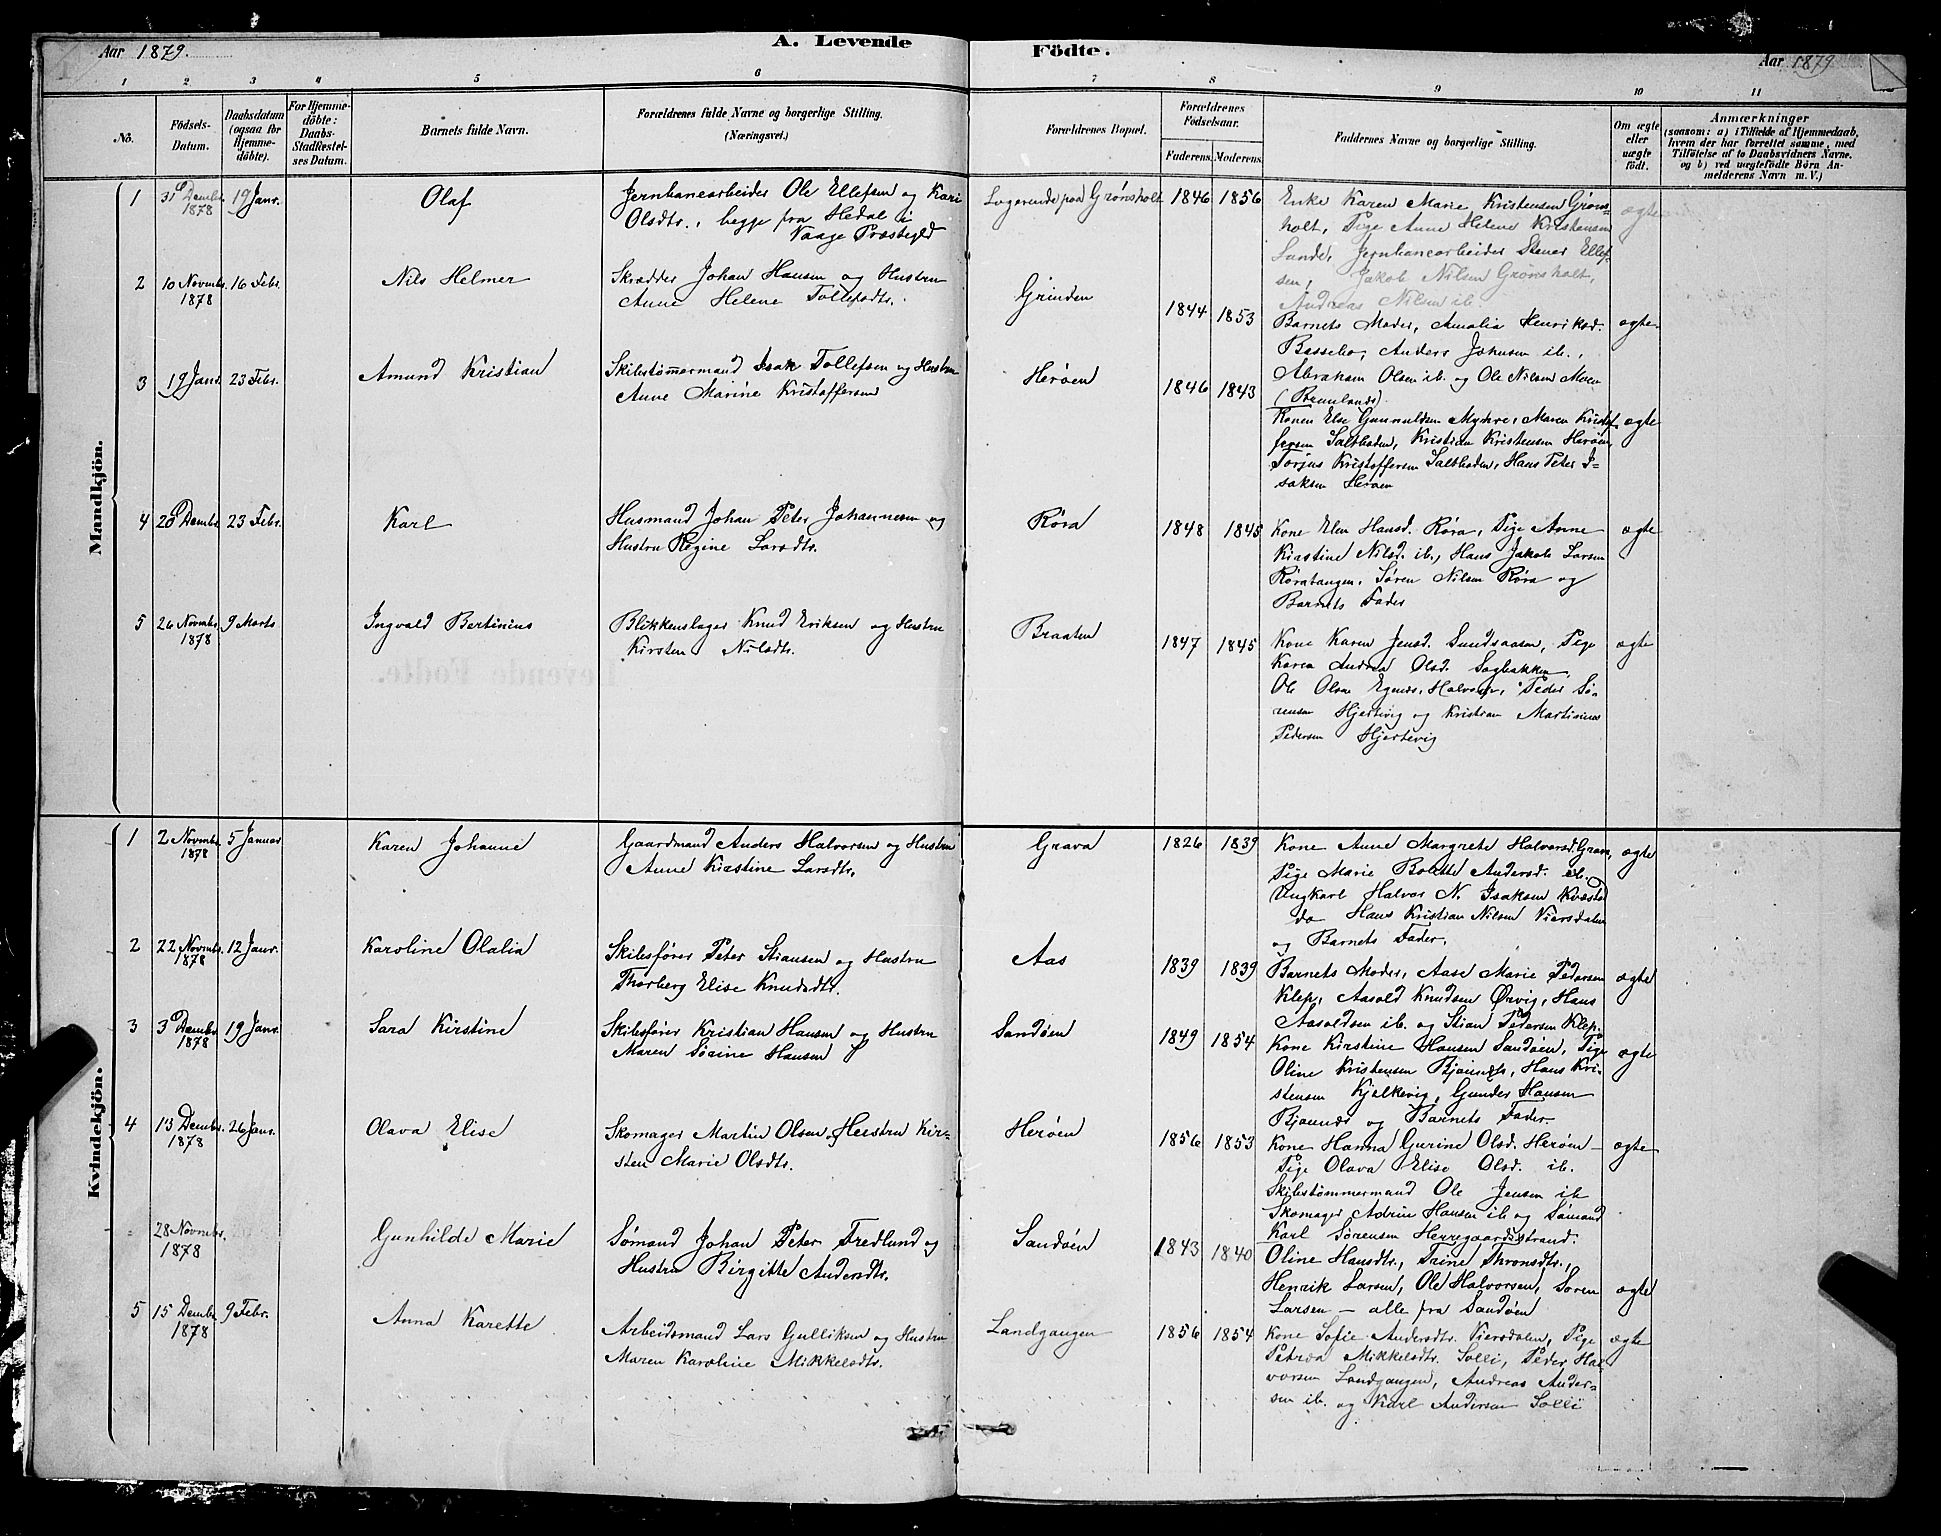 Aar 1879.
A. Levende
Födte.
Aar 1879
1 2 3 4 5 6 7 8 9 10 11
No.
Födsels-
Datum.
Daabsdatum
(ogsaa for
Hjemme-
döbte).
For Hjemme-
döbte:
Daabs-
Stadfæstel-
ses Datum.
Barnets fulde Navn.
Forældrenes fulde Navne og borgerlige Stilling.
(Næringsvei.)
Forældrenes Bopæl.
Forældrenes
Födselsaar.
Faderens. Moderens.
Faddernes Navne og borgerlige Stilling.
Om ægte
eller
uægte
födt.
Anmærkninger
(saasom: a) i Tilfælde af Hjemmedaab,
hvem der har forrettet samme, med
Tilföielse af to Daabsvidners Navne.
og b) ved uægtefödte Börn An-
melderens Navn m. V.)
Mandkjön.
1
31 Decembr.
1878
19 Janr.
Olaf
Jernbanearbeider Ole Ellefsen og Kari
Olsdtr., begge fra Hedal i
Vaage Præstegjeld
Logerende paa Grønsholt
1846
1856
Enke Karen Marie Kristensen Grøns-
holt, Pige Anne Helene Kristensen
Sande, Jernbanearbeider Stener Ellef-
sen, Jakob Nilsen Grønsholt,
Andreas Nilsen ib.
ægte
2
10 Novembr.
1878
16 Febr.
Nils Helmer
Skrædder Johan Hansen og Hustru
Anne Helene Tollefsdtr.
Grinden
1844
1853
Barnets Moder, Amalia Henriksd.
Bassebo, Anders Johnsen ib.,
Abraham Olsen ib. og Ole Nilsen Moen
ægte.
3
19 Janr.
23 Febr.
Amund Kristian
Skibstømmermand Isak Tollefsen og Hustru
Anne Marine Kristoffersen
Herøen
1846
1843
Konen Else Gunnuldsen Myhre, Maren Kristof-
fersen Saltboden, Kristian Kristensen Herøen,
Torjus Kristoffersen Saltboden, Hans Peter I-
saksen Herøen
ægte
4
20 Decembr.
23 Febr.
Karl
Husmand Johan Peter Johannesen og
Hustru Regine Larsdtr.
Røra
1848
1845
Kone Elen Hansd. Røra, Pige Anne
Kirstine Nilsd. ib., Hans Jakob Larsen
Røratangen, Søren Nilsen Røra og
Barnets Fader
ægte
5
26 Novembr.
1878
9 Marts
Ingvald Bertinius
Blikkenslager Knud Eriksen og Hustru
Kirsten Nilsdtr.
Braaten
1847
1845
Kone Karen Jensd. Sundsaasen, Pige
Karen Andrea Olsd. Sagbakken,
Ole Olsen Egenes, Halvor, Peder Sø-
rensen Hjertevig og Kristian Martinius
Pedersen Hjertevig
ægte
Kvindekjön.
1
2 Novembr.
1878
5 Januar
Karen Johanne
Gaardmand Anders Halvorsen og Hustru
Anne Kirstine Larsdtr.
Grava
1826
1839
Kone Anne Margrete Halvorsd. Grava,
Pige Marie Bolette Andersd. ib.
Ungkarl Halvor N. Isaksen Kvæste
do Hans Kristian Nilsen Viersdalen
og Barnets Fader.
ægte
2
22 Novembr.
1878
12 Janr.
Karoline Olalia
Skibsfører Peter Stiansen og Hustru
Thorberg Elise Knudsdtr.
Aas
1839
1839
Barnets Moder, Aase Marie Pedersen
Klep, Aasold Knudsen Ørvig, Hans
Aasoldsen ib. og Stian Pedersen Klep.
ægte
3
3 Decembr.
1878
19 Janr.
Sara Kirstine
Skibsfører Kristian Hansen og Hustru
Maren Sørine Hansen
Sandøen
1849
1854
Kone Kirstine Hansen Sandøen, Pige
Oline Kristensen Bjønnes, Hans Kri-
stensen Kjelkevig, Gunder Hansen
Bjønnes og Barnets Fader.
ægte
4
13 Decembr.
1878
26 Janr.
Olava Elise
Skomager Martin Olsen, Hustru Kir-
sten Marie Olsdtr.
Herøen
1856
1853
Kone Hanna Gurine Olsd. Herøen –
Pige Olava Elise Olsd. ib.
Skibstømmermand Ole Jensen ib
Skomager Adrin Hansen ib og Sømand
Karl Sørensen Herregaardsstrand.
ægte
-
28 Novembr.
1878
Gunhilde Marie
Sømand Johan Peter Fredlund og
Hustru Birgitte Andersdtr.
Sandøen
1843
1840
Oline Hansdtr., Trine Thronsdtr.,
Henrik Larsen, Ole Halvorsen, Søren
Larsen – alle fra Sandøen
ægte
5
15 Decembr
1878
9 Febr.
Anna Karette
Arbeidsmand Lars Gulliksen og Hustru
Maren Karoline Mikkelsdtr.
Landgangen
1856
1854
Kone Sofie Andersdtr. Viersdalen, Pige
Petrea Mikkelsdtr. Solli, Peder Hal-
vorsen Landgangen, Andreas Ander-
sen ib. og Karl Andersen Solli
ægte